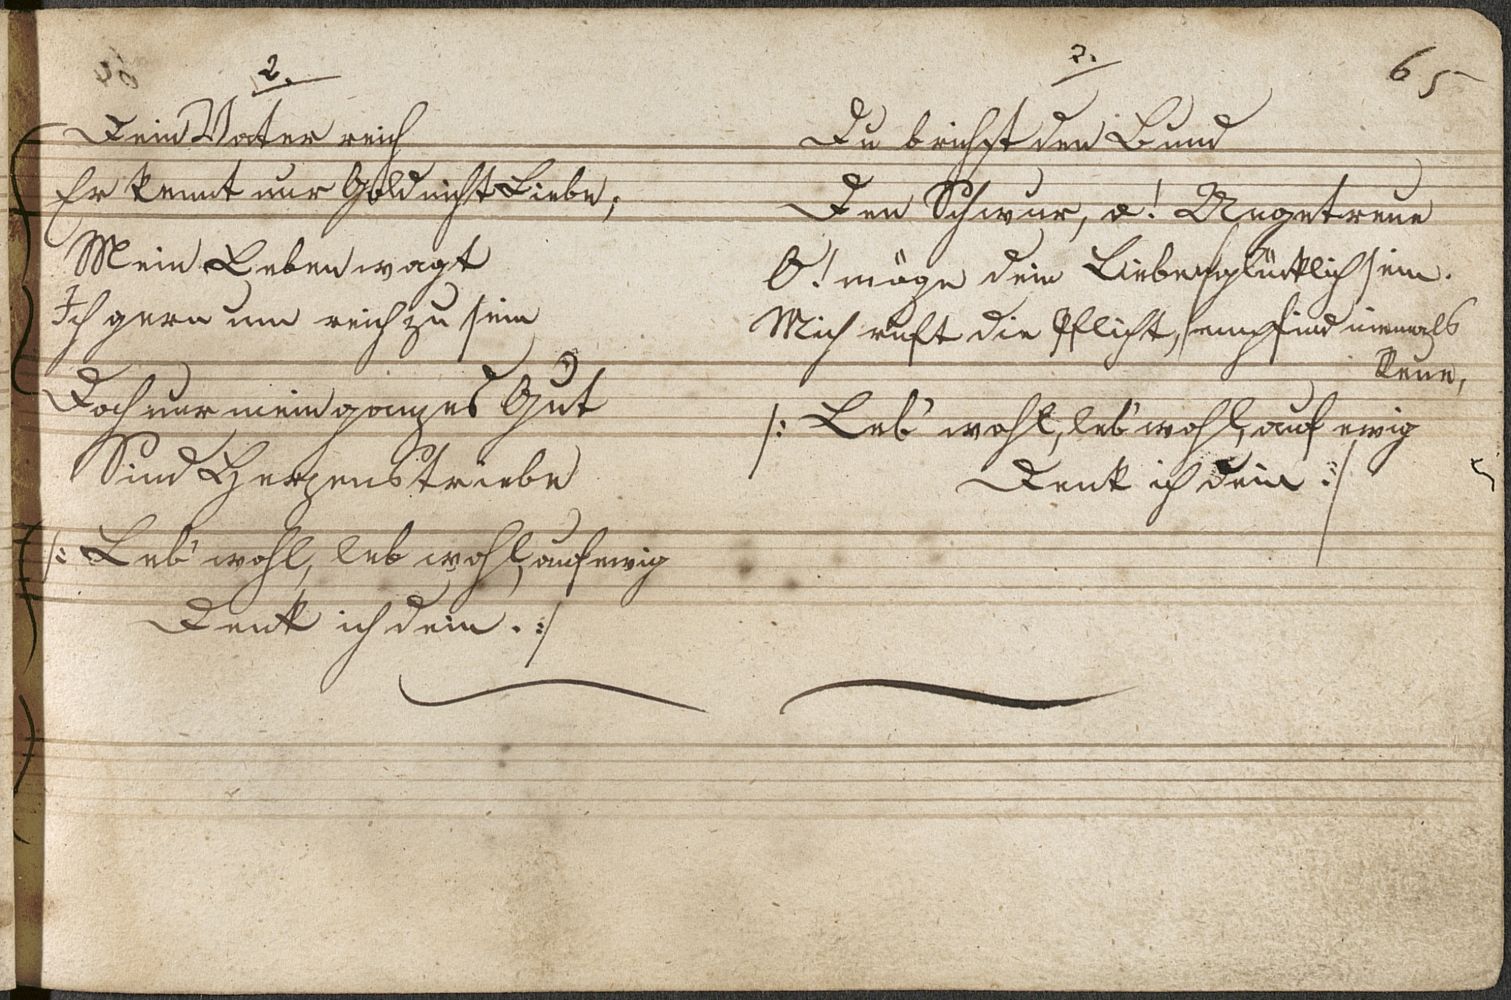 65
2.
Dein Vater reich
Er kennt nur Gold nicht Liebe;
Mein Leben wagt
Ich gern um reich zu sein
Doch nur mein ganzes Gut
Sind Herzenstriebe
/: Leb' wohl, leb wohl, auf ewig
Denk ich dein. :/
3.
Du brichst den Bund
Den Schwur, o! Ungetreue
O! möge dein Lieben glücklich sein.
Mich ruft die Pflicht, empfind niemals
Reue,
/: Leb' wohl, leb' wohl, auf ewig
Denk ich dein :/